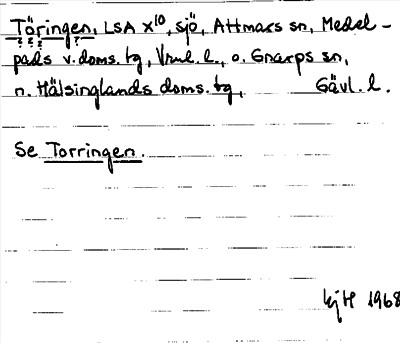 Töringen, LSA X10, sjö, Attmars sn, Medel-
pads v. doms. tg, Vrnl. l., o. Gnarps sn,
n. Hälsinglands doms. tg, Gävl. l.
Se Torringen.
1968